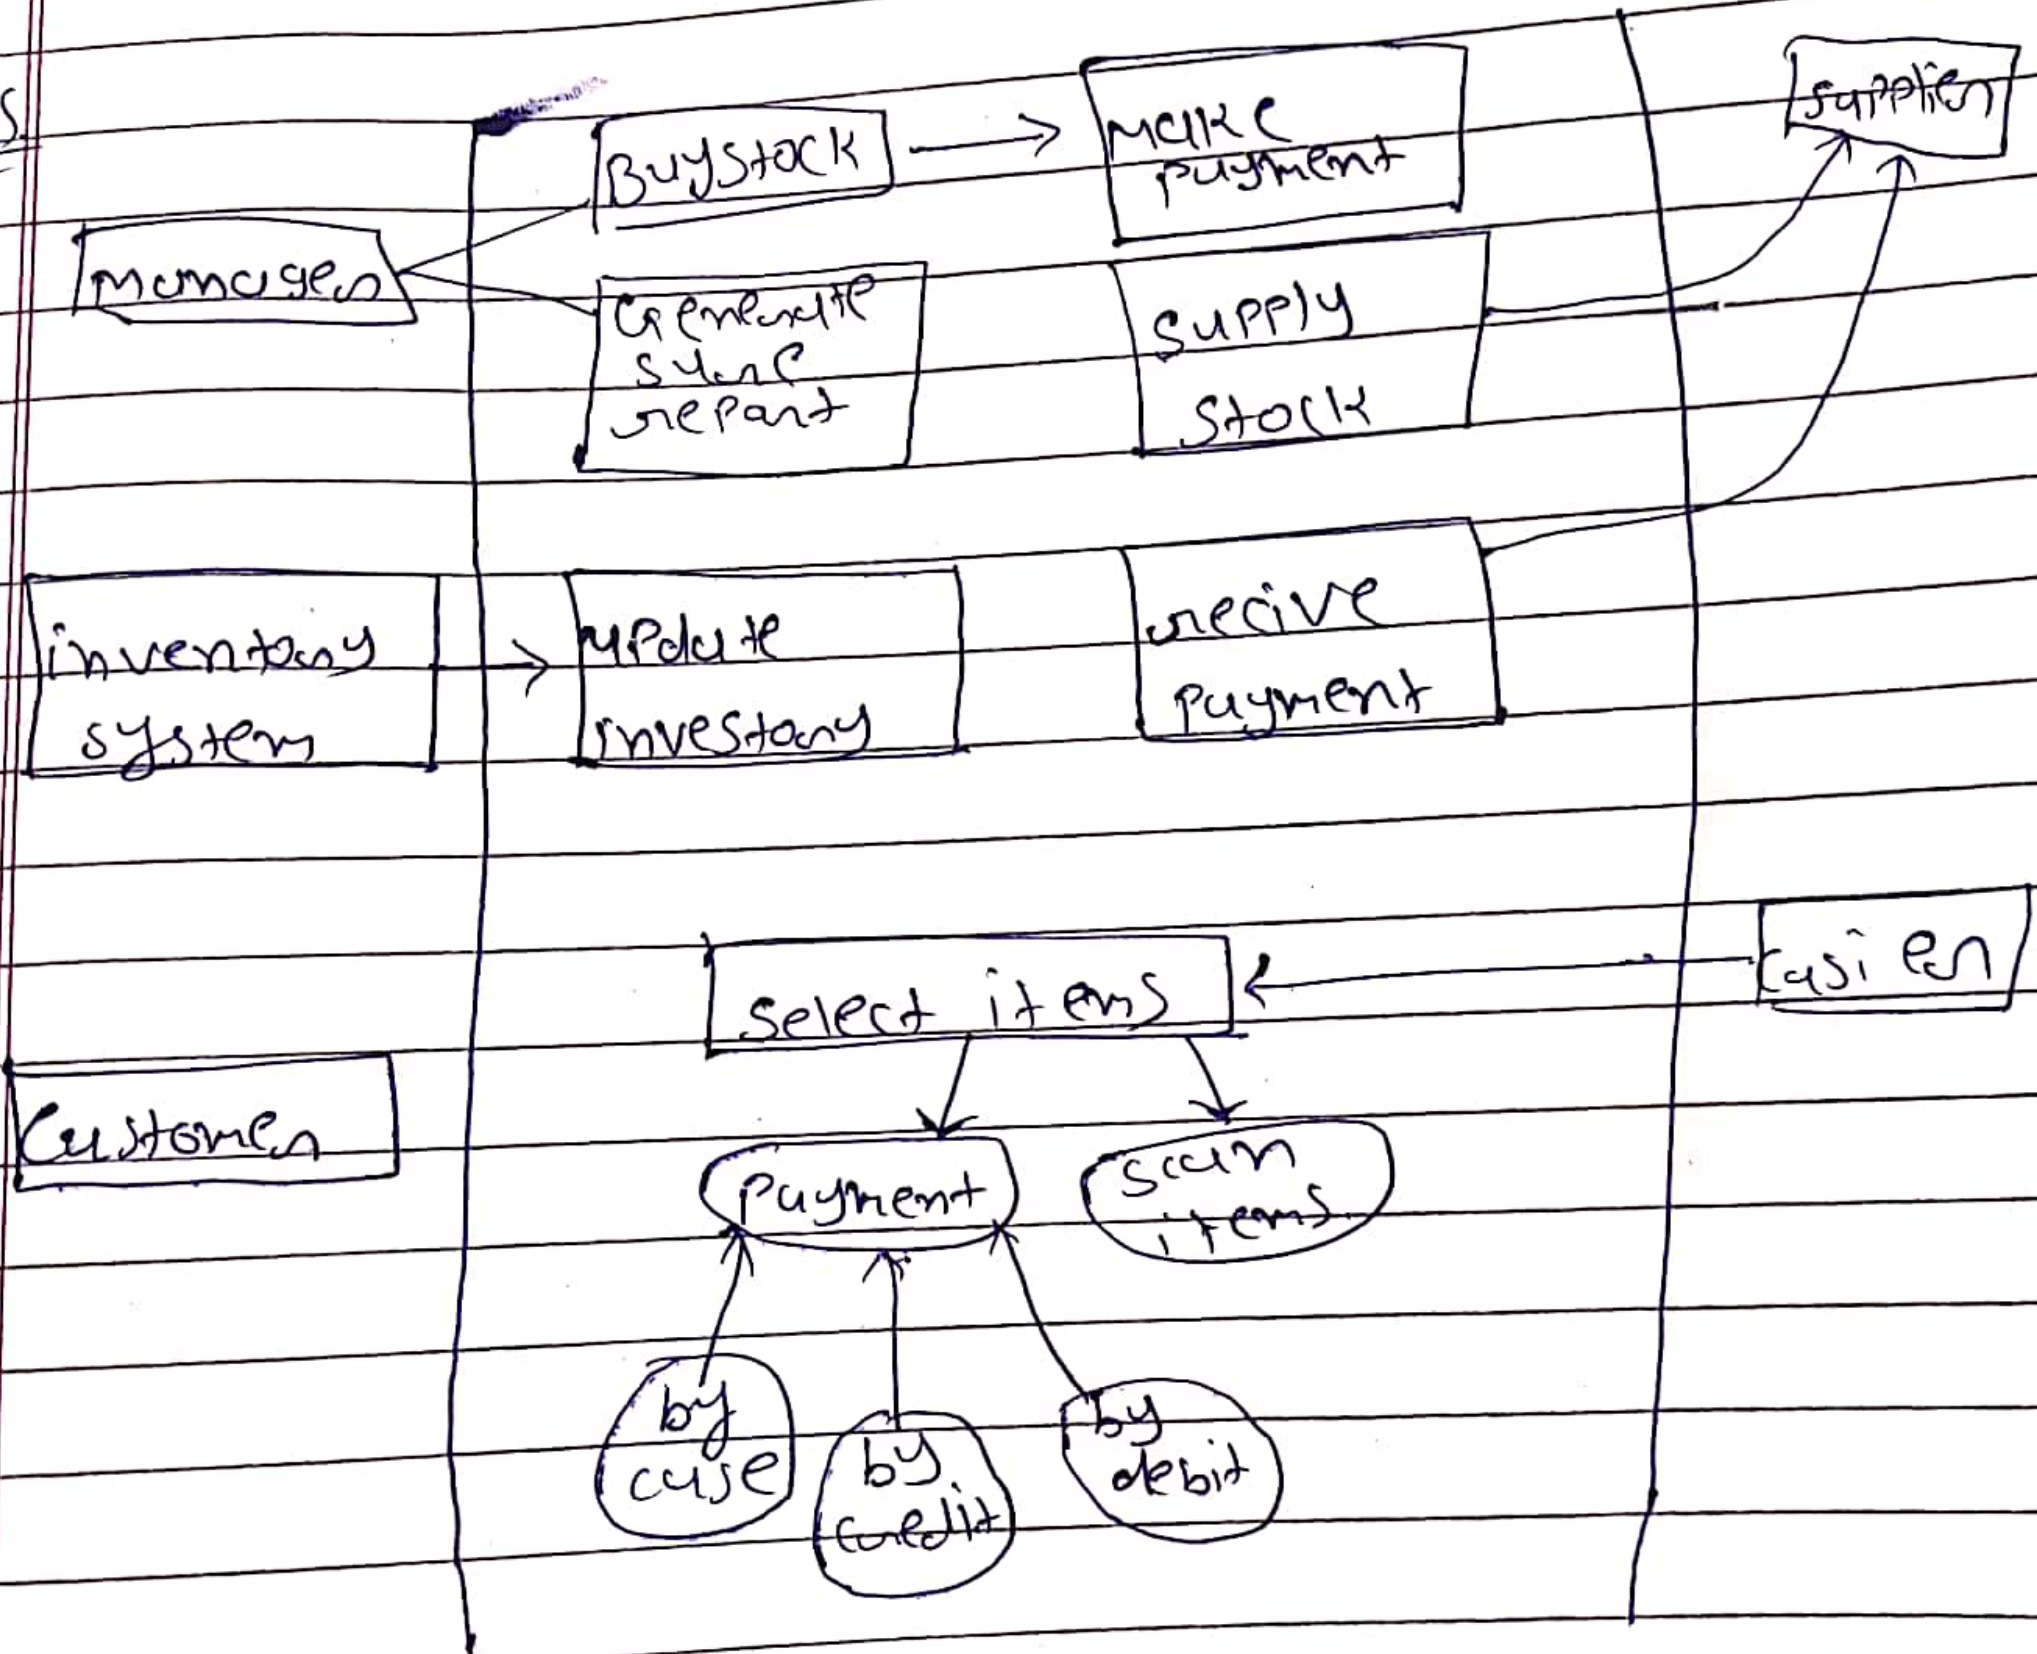 s
Buy stock
make
payment
supplier
manager
Generate
sale
report
supply
stock
inventory
system
update
investory
recive
payment
select items
casi er
Customer
payment
scan
items
by
case
by
credit
by
debit